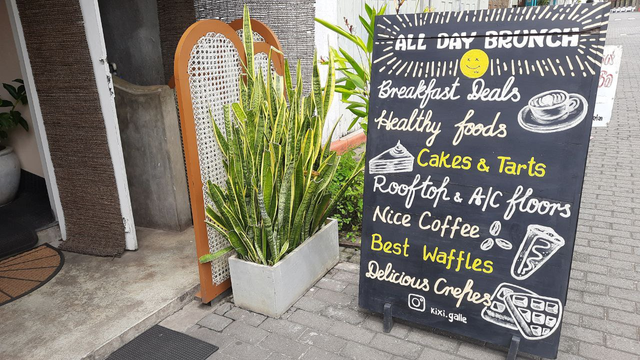 ALL DAY BRUNCH
Breakfast Deals
Healthy foods
Cakes & Tarts
Rooftop & A/C floors
Nice Coffee
Best Waffles
Delicious Crepes
kixi.galle